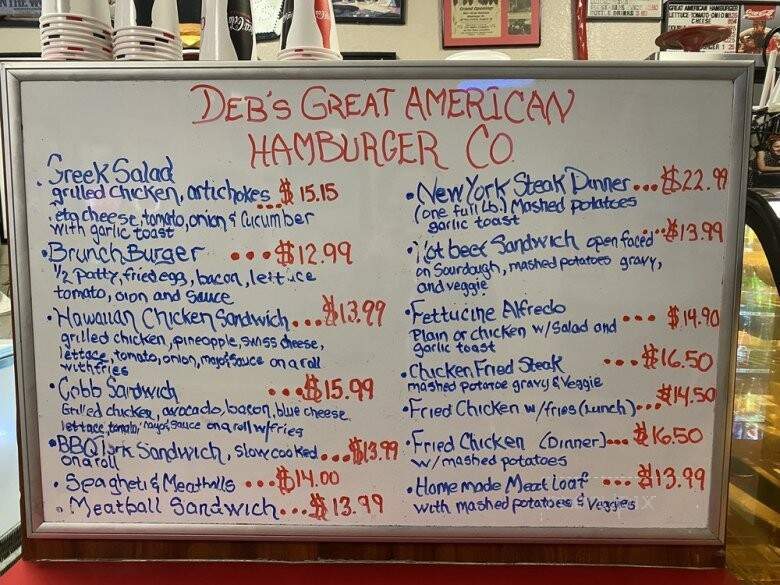 DEB'S GREAT AMERICAN
HAMBURGER CO.
Greek Salad
grilled chicken, artichokes $ 15.15
feta cheese, tomato, onion & Cucumber
with garlic toast
Brunch Burger ... $12.99
1/2 patty, fried egg, bacon, lettuce
tomato, oion and sauce
Hawaiian Chicken Sandwich... $13.99
grilled chicken, pineapple, swiss cheese,
lettace, tomato, onion, mayo, sauce on a roll
with fries
Cobb Sandwich ... $15.99
Grilled chicken, avocado, bacon, blue cheese
lettace, tomato, mayo, sauce on a roll w/fries
BBQ Pork Sandwich, slow cooked ... $13.99
on a roll
Spagheti & Meatballs ... $14.00
Meatball Sandwich... $13.99
New York Steak Dinner... $22.99
(one full Lb.) Mashed potatoes
garlic toast
Hot beef Sandwich open faced ... $13.99
on Sourdough, mashed potatoes gravy,
and veggie
Fettucine Alfredo ... $14.90
Plain or chicken w/Salad and
garlic toast
Chicken Fried Steak ... $16.50
mashed potatoe gravy & Veggie
Fried Chicken w/fries (Lunch)... $14.50
Fried Chicken (Dinner)... $16.50
w/ mashed potatoes
Home made Meat Loaf ... $13.99
with mashed potatoes & Veggies
GREAT AMERICAN HAMBURGER
LETTUCE-TOMATO-ONION
CHEESE
Coca-Cola